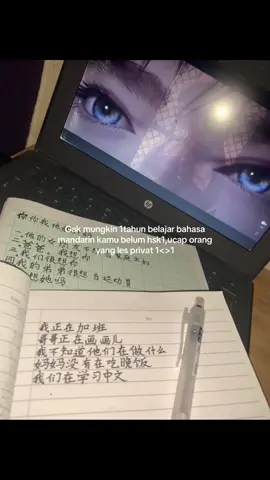 Gak mungkin 1tahun belajar bahasa
mandarin kamu belum hsk1,ucap orang
yang les privat 1<>1
你你我他
我们很想你
四我的弟弟很想去运动
我正在加班
哥哥正在画画儿
我不知道他们在做什么
妈妈没有在吃晚饭
我们在学习中文